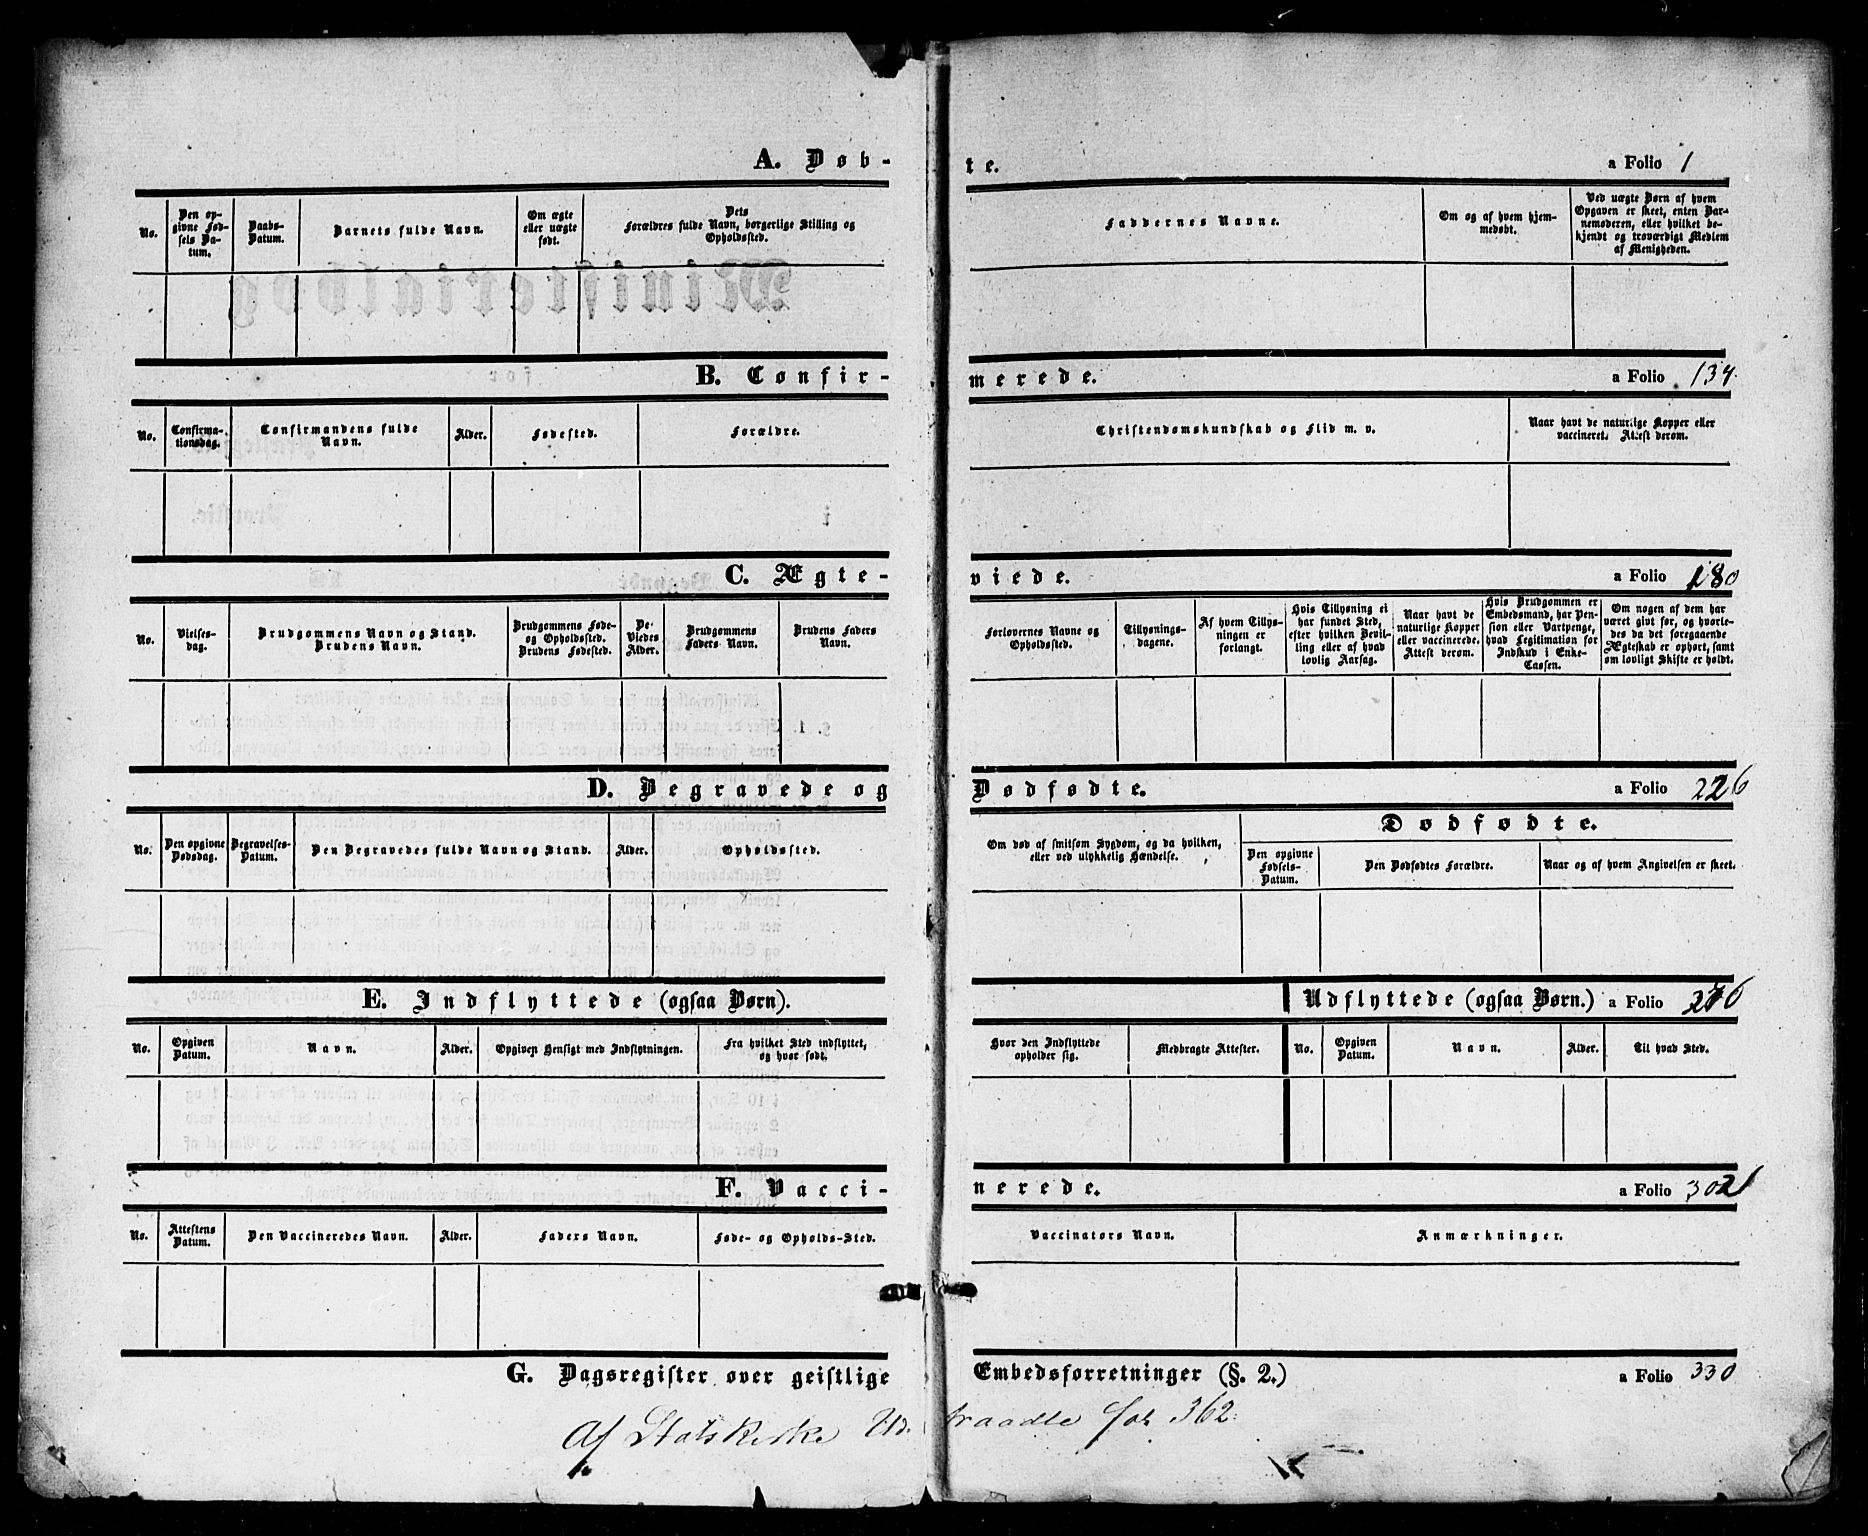 A. Døb-te. a Folio 1
No. Den opgivne Fødsels Datum. Daabs-Datum. Barnets fulde Navn. Om ægte eller uægte født. Dets Forældres fulde Navn, borgerlige Stilling og Opholdssted. Faddernes Navne. Om og af hvem hjemmedøbt. Ved uægte Børn af hvem Opgaven er skeet, enten Barnemoderen, eller hvilket bekjendt og troværdigt Medlem af Menigheden.
B. Confir-merede. a Folio 134.
No. Confirmationsdag. Confirmandens fulde Navn. Alder. Fødested. Forældre. Christendomskundskab og Flid m. v. Naar havt de naturlige Kopper eller vaccineret. Attest derom.
C. Ægte-viede. a Folio 180
No. Vielsesdag. Brudgommens Navn og Stand. Brudens Navn. Brudgommens Føde- og Opholdssted. Brudens Fødested. De Viedes Alder. Brudgommens Faders Navn. Brudens Faders Navn. Forlovernes Navne og Opholdssted. Tillysningsdagene. Af hvem Tillysningen er forlangt. Hvis Tillysning ei har fundet Sted, efter hvilken Bevilling eller af hvad lovlig Aarsag. Naar havt de naturlige Kopper eller vaccinerede. Attest derom. Hvis Brudgommen er Embedsmand, har Pension eller Vartpenge, hvad Legitimation for Indskud i Enke-Cassen. Om nogen af dem har været gift før, og hvorledes da det foregaaende Ægteskab er ophørt, samt om lovligt Skifte er holdt.
D. Begravede og Dødfødte. a Folio 226
No. Den opgivne Dødsdag. Begravelses-Datum. Den Begravedes fulde Navn og Stand. Alder. Opholdssted. Om død af smitsom Sygdom, og da hvilken, eller ved ulykkelig Hændelse. Dødfødte. Den opgivne Fødsels-Datum. Den Dødfødtes Forældre. Naar og af hvem Angivelsen er skeet.
E. Indflyttede (ogsaa Børn). Udflyttede (ogsaa Børn.) a Folio 276
No. Opgiven Datum. Navn. Alder. Opgiven Hensigt med Indflytningen. Fra hvilket Sted indflyttet, og hvor født. Hvor den Indflyttede opholder sig. Medbragte Attester. No. Opgiven Datum. Navn. Alder. Til hvad Sted.
F. Vacci-nerede. a Folio 302
No. Attestens Datum. Den Vaccineredes Navn. Alder. Faders Navn. Føde- og Opholds-Sted. Vaccinators Navn. Anmærkninger.
G. Dagsregister over geistlige Embedsforretninger (§. 2.) a Folio 330
Af Statskirke Ud-traadte fol 362.